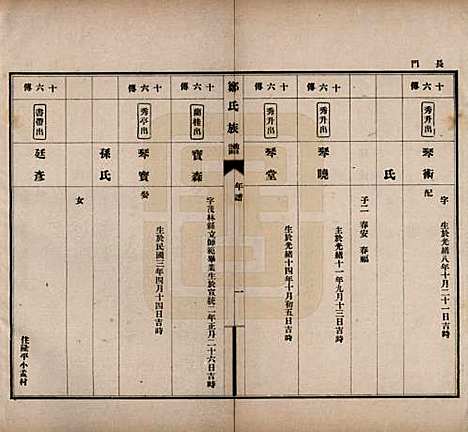 長門
十六傳
秀升出
琴術
字
生於光緒八年十月二十一日吉時
配
氏
子二 春安 春福
十六傳
秀升出
琴曉
生於光緒十一年九月十三日吉時
十六傳
秀升出
琴堂
生於光緒十四年十月初五日吉時
鄒氏族譜
年譜
一
十六傳
蘭桂出
寶森
字茂林縣立師範畢業生於宣統二年正月二十六日吉時
十六傳
秀亭出
琴寶
娶
生於民國三年四月十四日吉時
孫氏
女
十六傳
書帶出
廷彥
住祿平小孟村